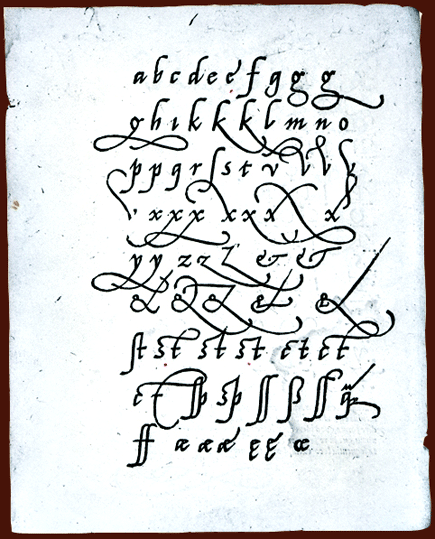 a b c d e e f g g g
g h ı k k k l m n o
p p q r ſ s t v v v
x x x x x x x
y y z z z & &
& & & & &
ſt st st st ct ct
ct ſp sp ſſ ß ſſ
ff æ æ æ ę ę œ